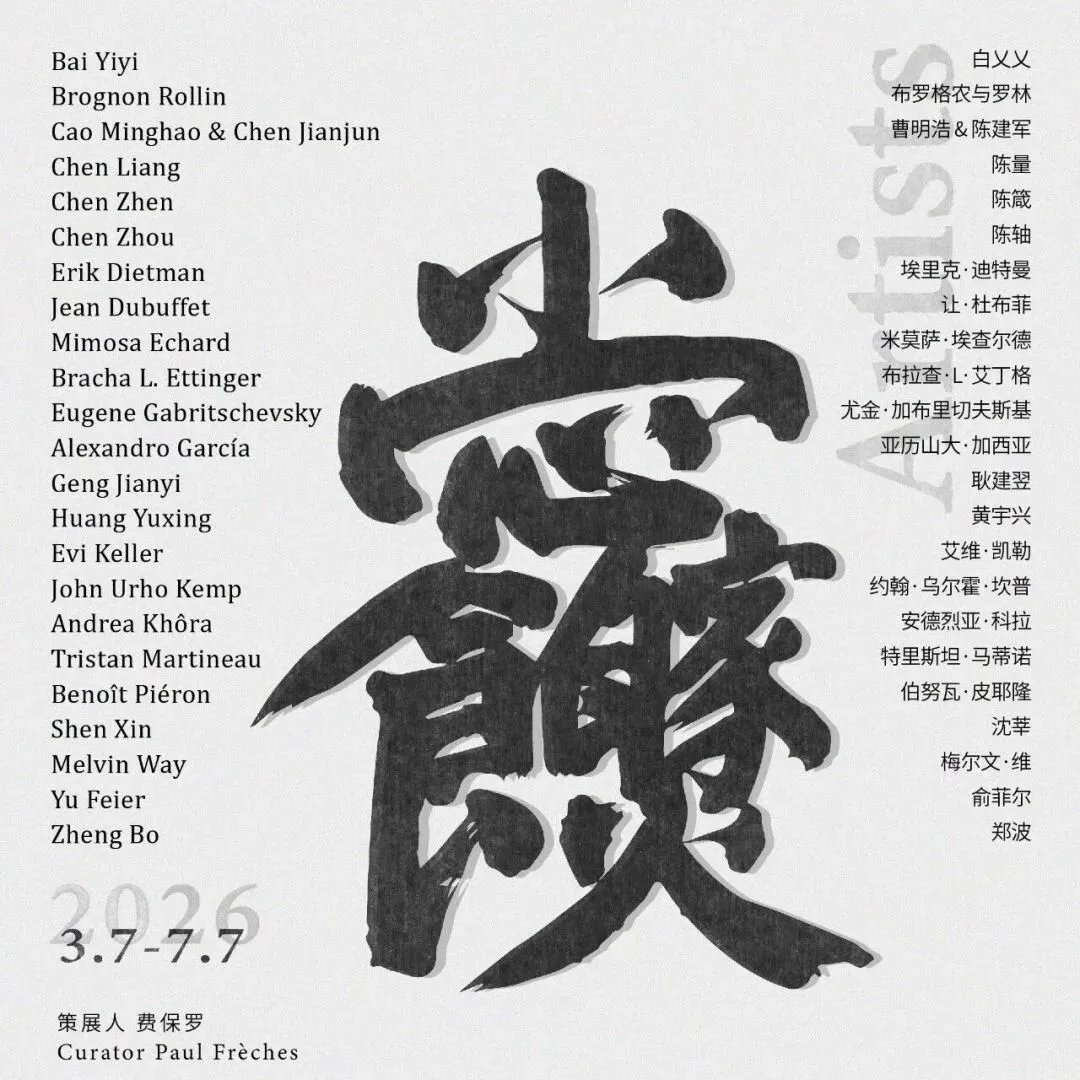 Bai Yiyi
Brognon Rollin
Cao Minghao & Chen Jianjun
Chen Liang
Chen Zhen
Chen Zhou
Erik Dietman
Jean Dubuffet
Mimosa Echard
Bracha L. Ettinger
Eugene Gabritschevsky
Alexandro García
Geng Jianyi
Huang Yuxing
Evi Keller
John Urho Kemp
Andrea Khôra
Tristan Martineau
Benoît Piéron
Shen Xin
Melvin Way
Yu Feier
Zheng Bo
Artists
白乂乂
布罗格农与罗林
曹明浩&陈建军
陈量
陈箴
陈轴
埃里克·迪特曼
让·杜布菲
米莫萨·埃查尔德
布拉查·L·艾丁格
尤金·加布里切夫斯基
亚历山大·加西亚
耿建翌
黄宇兴
艾维·凯勒
约翰·乌尔霍·坎普
安德烈亚·科拉
特里斯坦·马蒂诺
伯努瓦·皮耶隆
沈莘
梅尔文·维
俞菲尔
郑波
2026
3.7-7.7
策展人 费保罗
Curator Paul Frèches